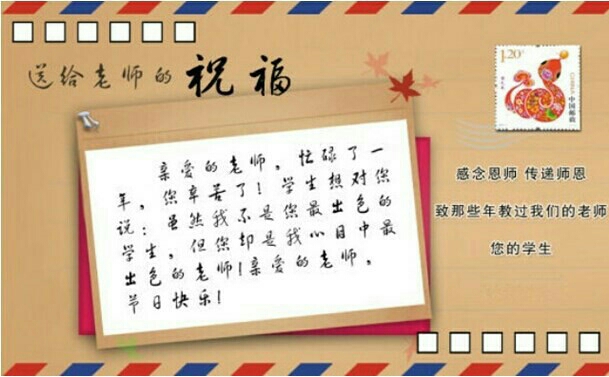 送给老师的祝福
亲爱的老师，忙碌了一
年，您辛苦了！学生想对您
说：虽然我不是您最出色的
学生，但您却是我心目中最
出色的老师！亲爱的老师，
节日快乐！
1.20元
中国邮政
CHINA
感念恩师 传递师恩
致那些年教过我们的老师
您的学生